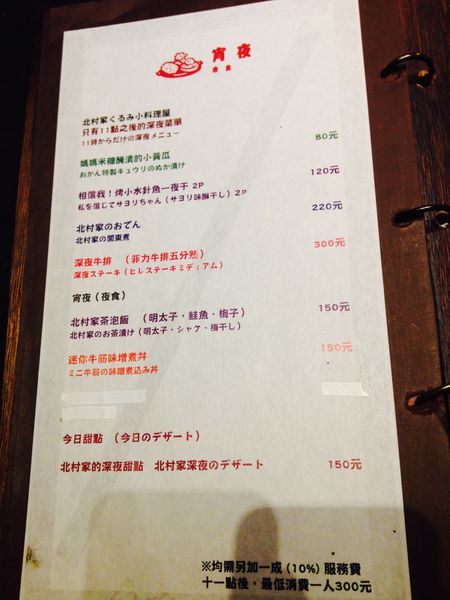 宵夜
夜食
北村家くるみ小料理屋
只有11點之後的深夜菜單
11時からだけの深夜メニュー
媽媽米糠醃漬的小黃瓜 80元
おかん特製キュウリのぬか漬け
相信我！烤小水針魚一夜干 2P 120元
私を信じてサヨリちゃん（サヨリ味醂干し）2P
北村家のおでん 220元
北村家の關東煮
深夜牛排 （菲力牛排五分熟） 300元
深夜ステーキ（ヒレステーキミディアム）
宵夜（夜食）
北村家茶泡飯 （明太子・鮭魚・梅子） 150元
北村家のお茶漬け（明太子・シャケ・梅干し）
迷你牛筋味增煮丼 150元
ミニ牛筋の味增煮込み丼
今日甜點 （今日のデザート）
北村家的深夜甜點 北村家深夜のデザート 150元
※均需另加一成 (10%) 服務費
十一點後，最低消費一人300元